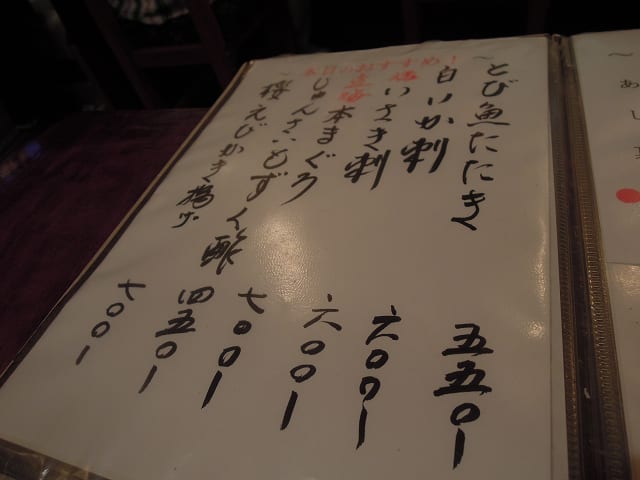 〜本日のおすすめ!〜
とび魚たたき 五五〇ー
白いか刺 六〇〇ー
いさき刺 六〇〇ー
本まぐろ 七〇〇ー
じゅんさいもずく酢 四五〇ー
桜えびかき揚げ 七〇〇ー
〜
あ
し